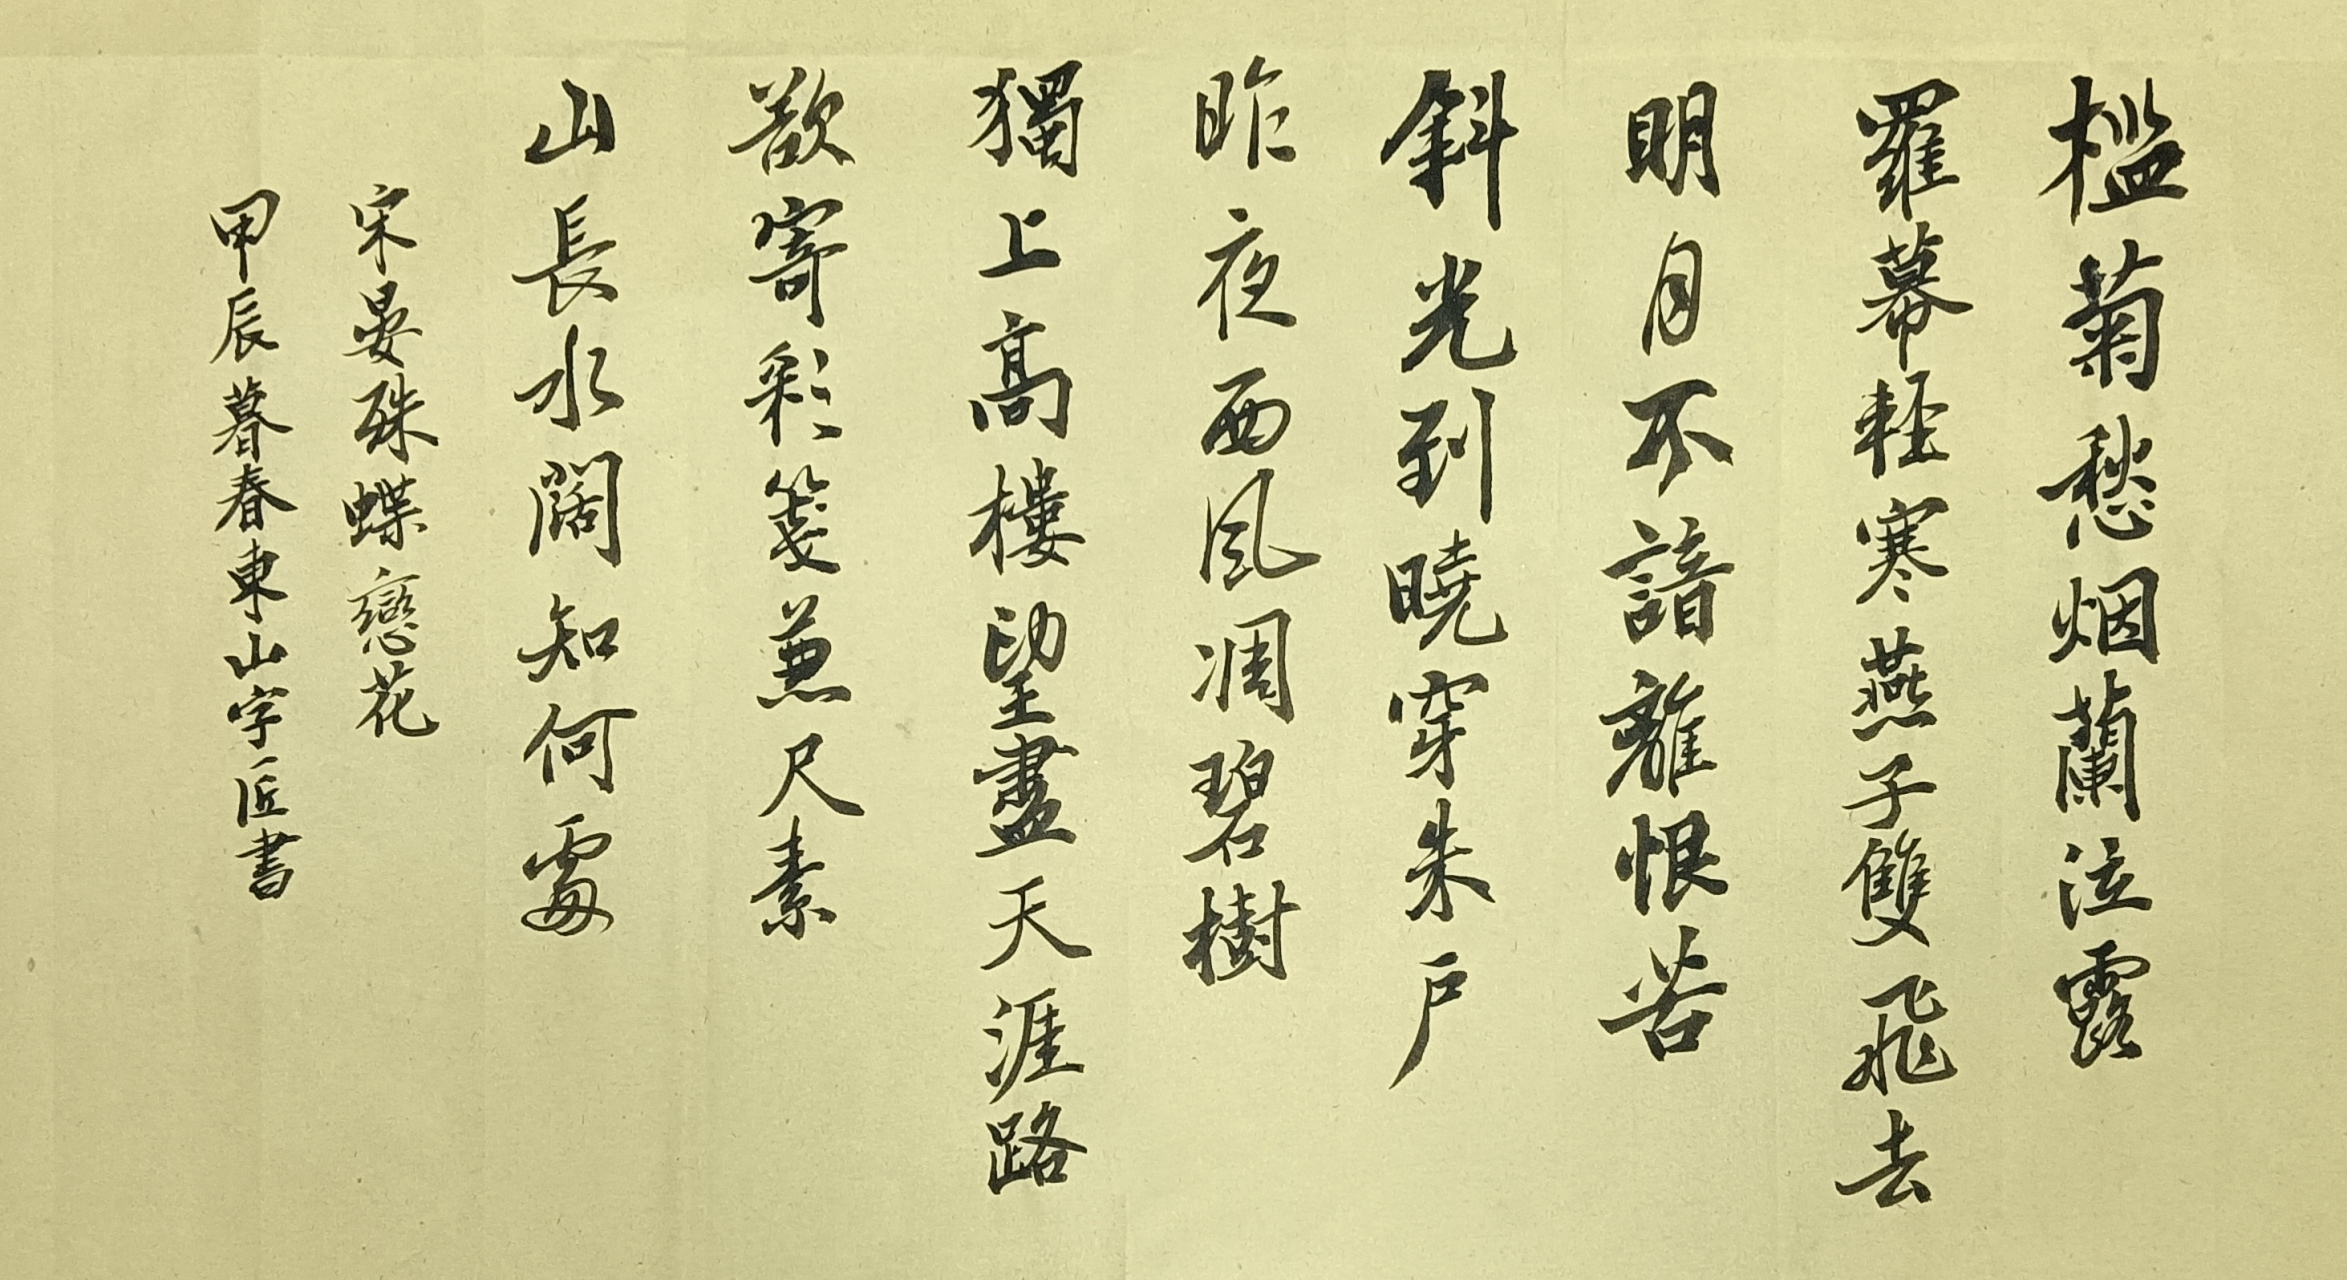 檻菊愁烟蘭泣露
羅幕輕寒燕子雙飛去
明月不諳離恨苦
斜光到曉穿朱戶
昨夜西風凋碧樹
獨上高樓望盡天涯路
欲寄彩箋兼尺素
山長水闊知何處
宋晏殊蝶戀花
甲辰暮春東山字匠書